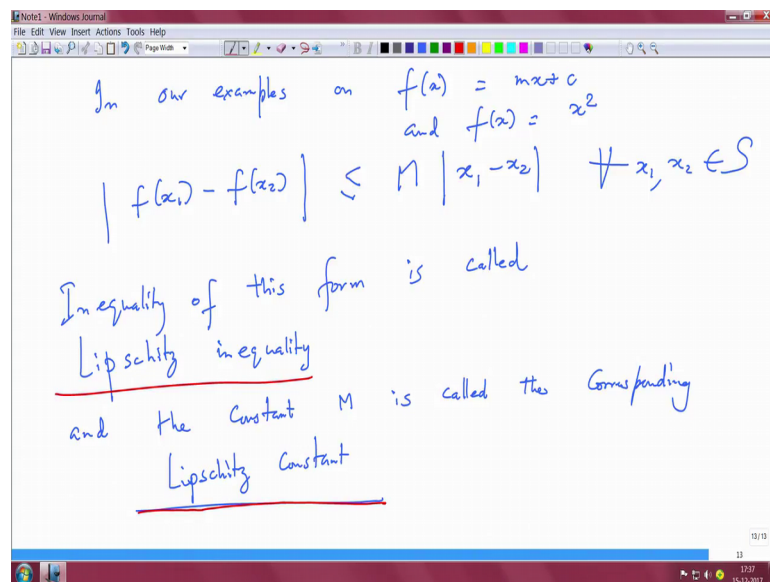 Note1 - Windows Journal
File Edit View Insert Actions Tools Help
Page Width
In our examples on f(x) = mx+c
and f(x) = x²
| f(x₁) - f(x₂) | ≤ M | x₁ - x₂ | ∀ x₁, x₂ ∈ S
Inequality of this form is called
Lipschitz inequality
and the constant M is called the Corresponding
Lipschitz Constant
13/13
13
17:37
15-12-2017